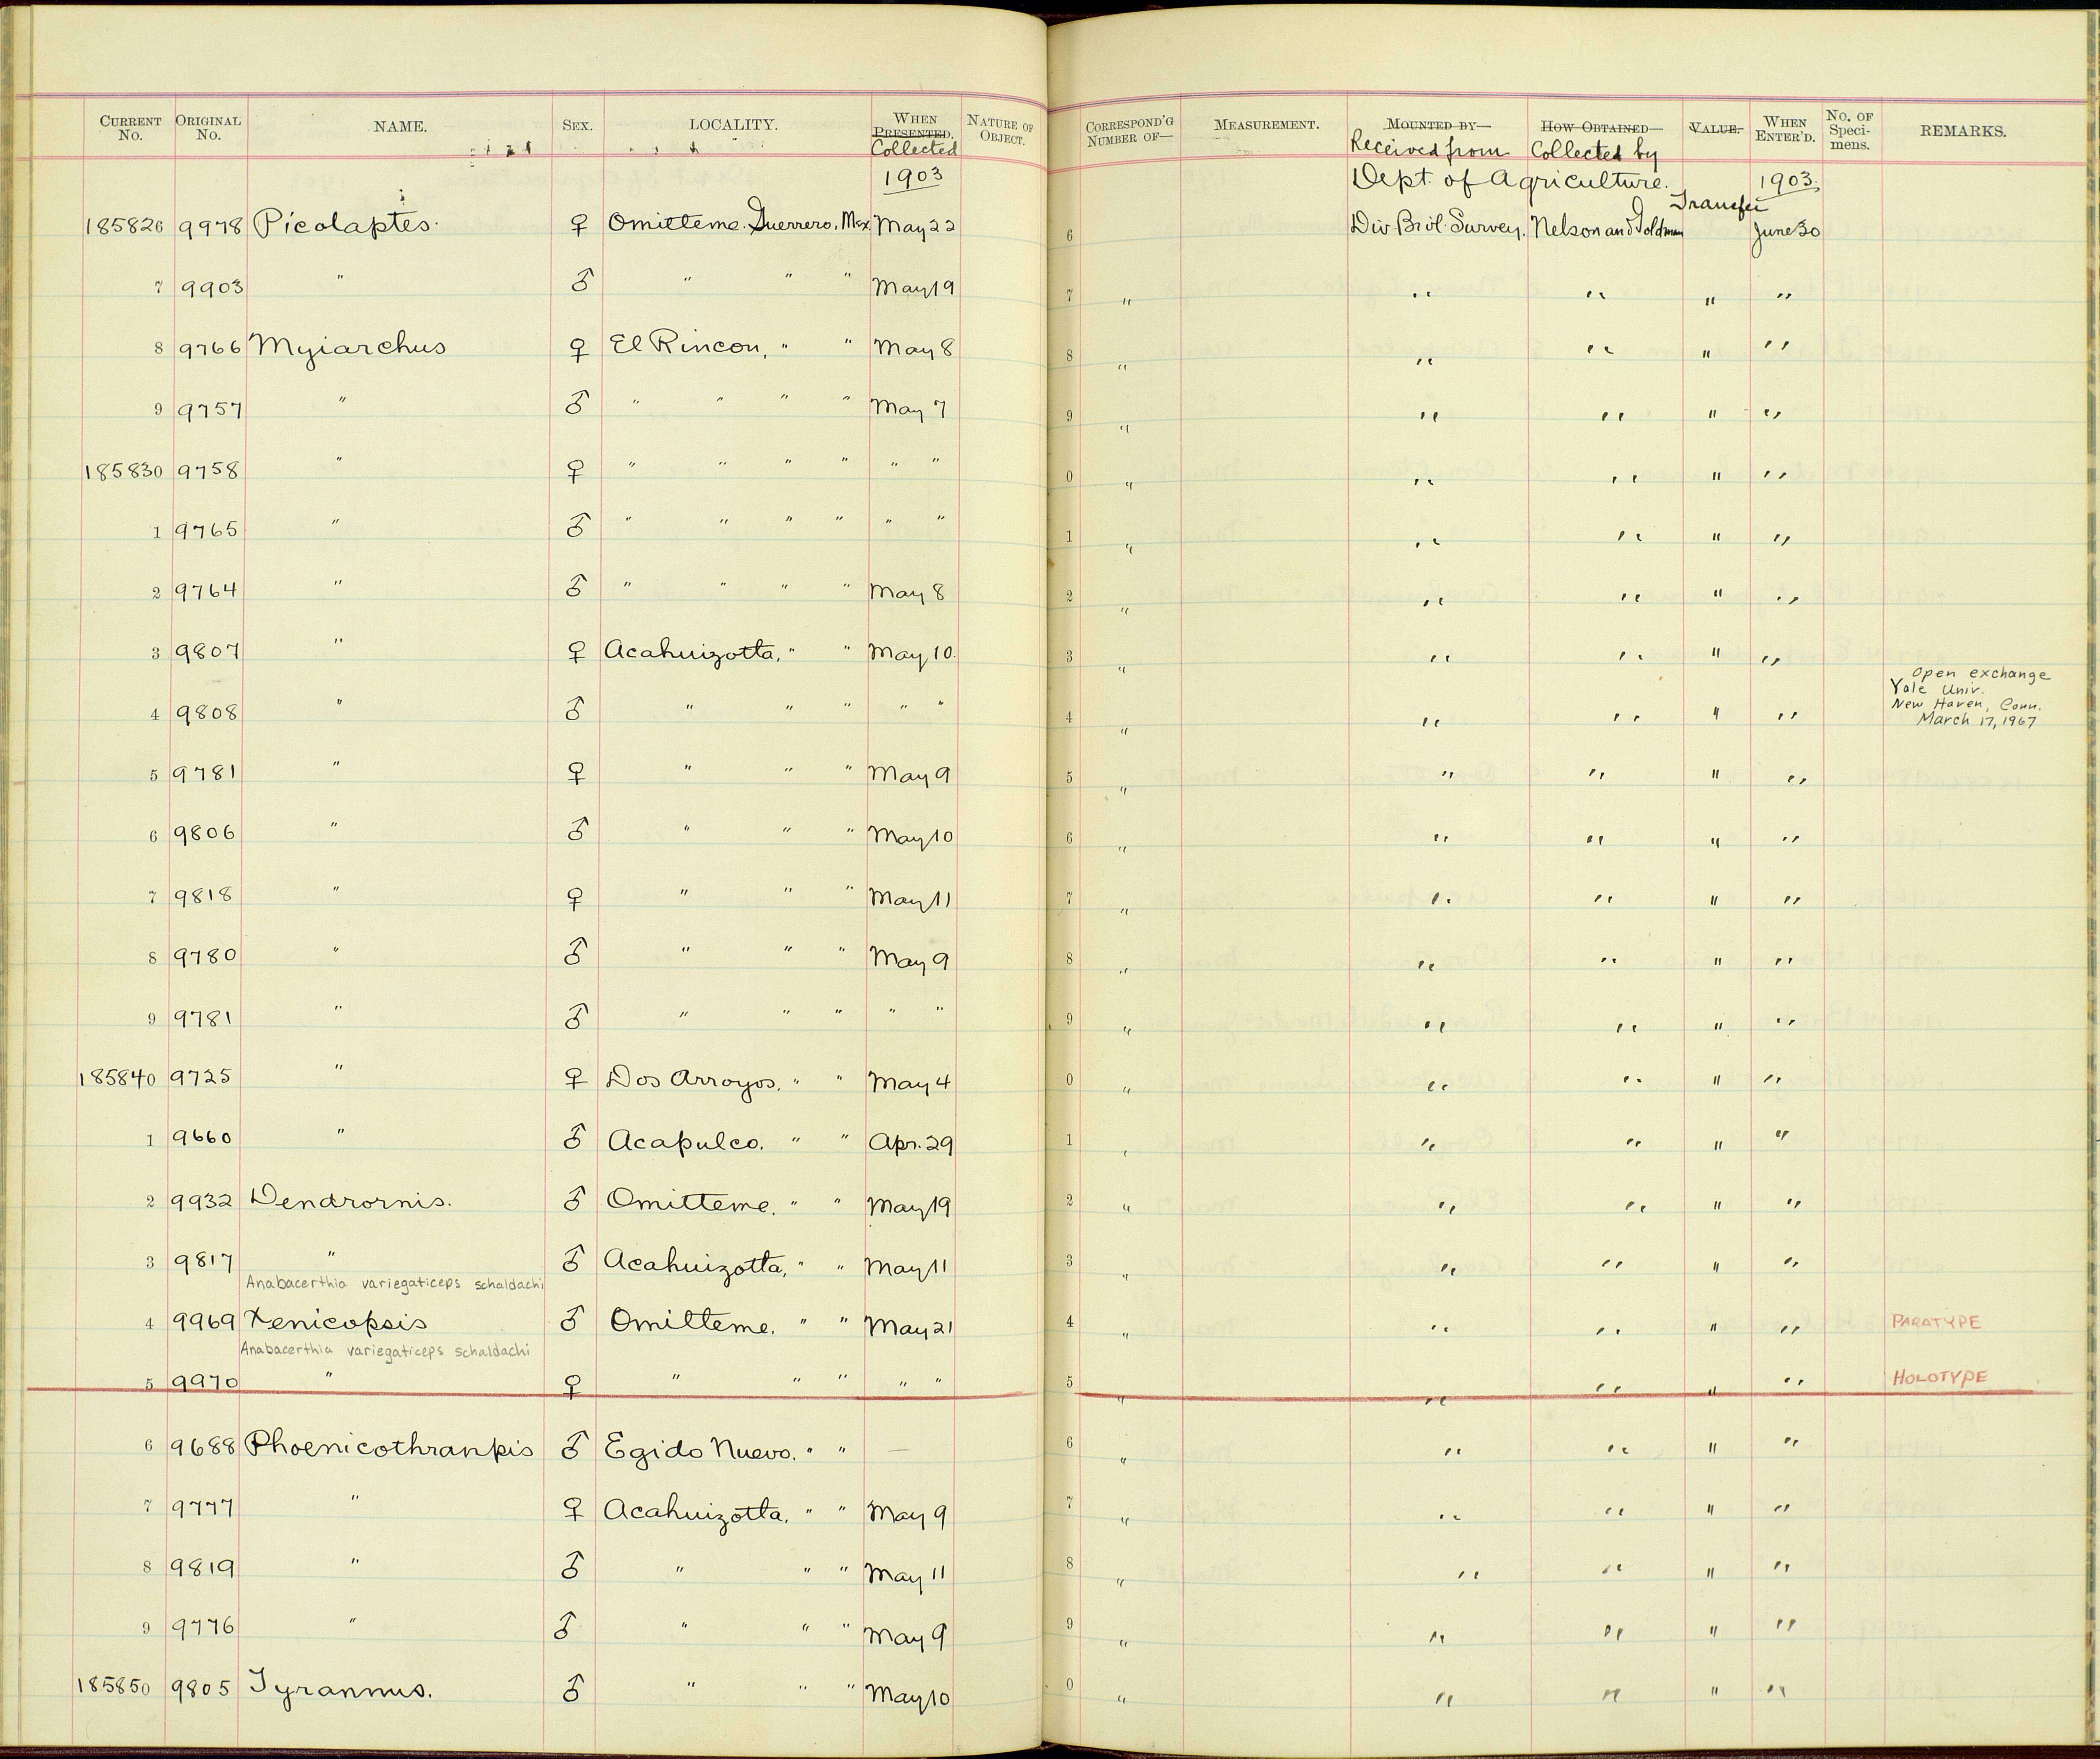 CURRENT No. ORIGINAL No. NAME. SEX. LOCALITY. WHEN PRESENTED. Collected NATURE OF OBJECT. CORRESPOND'G NUMBER OF— MEASUREMENT. MOUNTED BY— Received from HOW OBTAINED— Collected by VALUE. WHEN ENTER'D. No. OF Speci- mens. REMARKS.
1903 Dept. of Agriculture. 1903.
Transfer
185826 9978 Picolaptes. ♀ Omilteme. Guerrero, Mex May 22 6 Div Biol. Survey. Nelson and Goldman June 30
7 9903 " ♂ " " " May 19 7 " " " " "
8 9766 Myiarchus ♀ El Rincon, " " May 8 8 " " " " "
9 9757 " ♂ " " " " May 7 9 " " " " "
185830 9758 " ♀ " " " " " " 0 " " " " "
1 9765 " ♂ " " " " " " 1 " " " " "
2 9764 " ♂ " " " " May 8 2 " " " " "
3 9807 " ♀ Acahuizotta, " " May 10. 3 " " " " "
4 9808 " ♂ " " " " " 4 " " " " " Open exchange
Yale Univ.
New Haven, Conn.
March 17, 1967
5 9781 " ♀ " " " May 9 5 " " " " "
6 9806 " ♂ " " " May 10 6 " " " " "
7 9818 " ♀ " " " May 11 7 " " " " "
8 9780 " ♂ " " " May 9 8 " " " " "
9 9781 " ♂ " " " " " 9 " " " " "
185840 9725 " ♀ Dos Arroyos. " " May 4 0 " " " " "
1 9660 " ♂ Acapulco. " " Apr. 29 1 " " " " "
2 9932 Dendrornis. ♂ Omitteme. " " May 19 2 " " " " "
3 9817 " ♂ Acahuizotta, " " May 11 3 " " " " "
Anabacerthia variegaticeps schaldachi
4 9969 Xenicopsis ♂ Omilteme. " " May 21 4 " " " " " PARATYPE
Anabacerthia variegaticeps schaldachi
5 9970 " ♀ " " " " " 5 " " " " " HOLOTYPE
6 9688 Phoenicothranpis ♂ Egido Nuevo. " " — 6 " " " " "
7 9777 " ♀ Acahuizotta. " " May 9 7 " " " " "
8 9819 " ♂ " " " May 11 8 " " " " "
9 9776 " ♂ " " " May 9 9 " " " " "
185850 9805 Tyrannus. ♂ " " " May 10 0 " " " " "